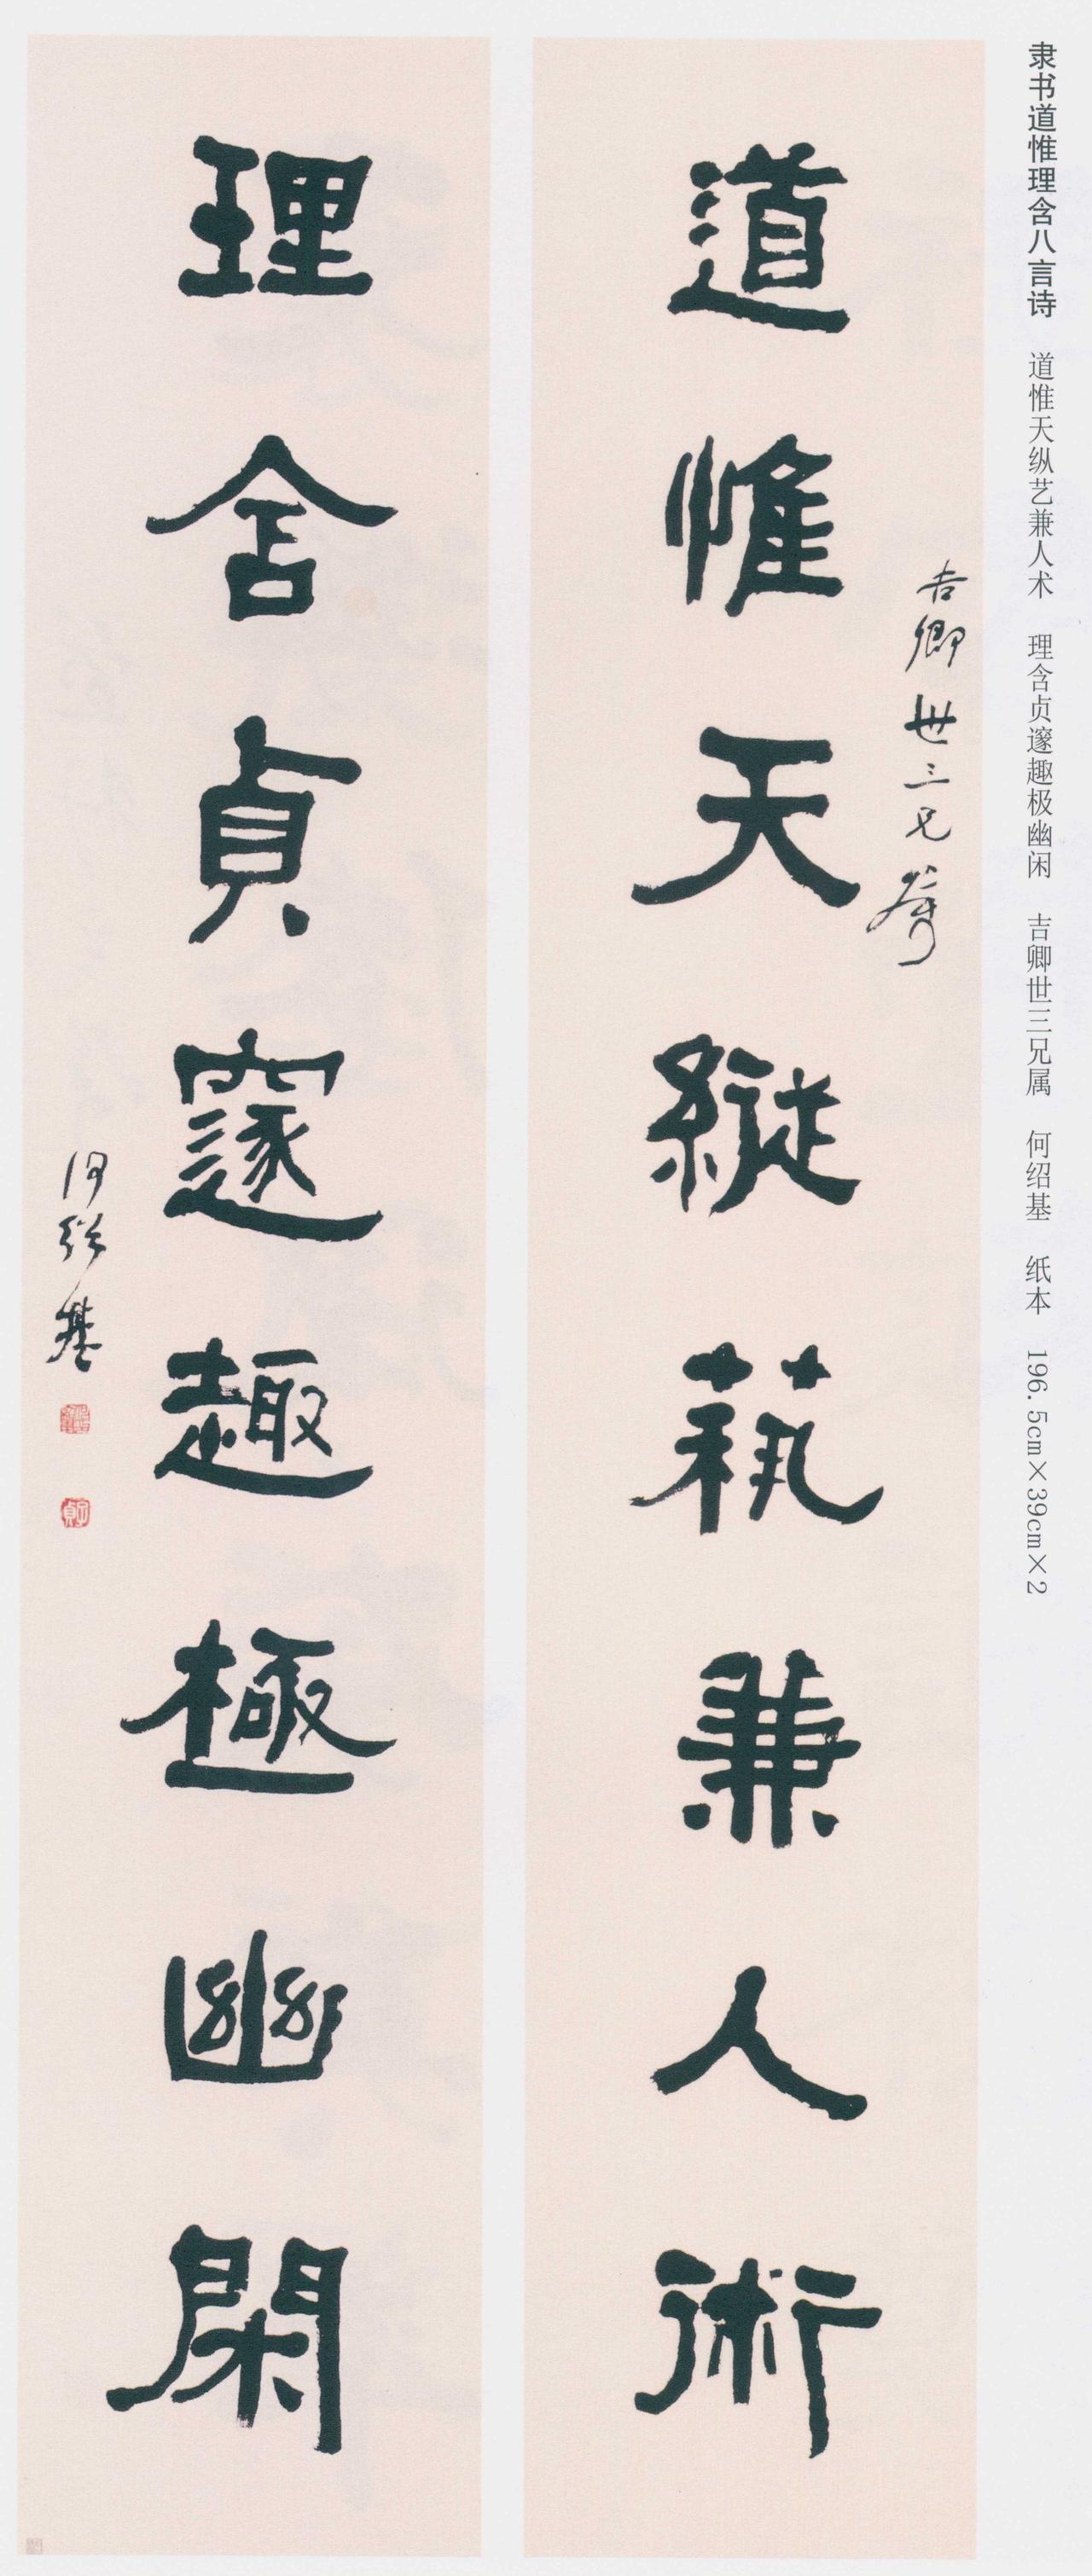 隶书道惟理含八言诗　道惟天纵艺兼人术　理含贞邃趣极幽闲　吉卿世三兄属　何绍基　纸本　196.5cm×39cm×2
吉卿世三兄属
道惟天縱蓺兼人術
理含貞邃趣極幽閑
何紹基
子貞